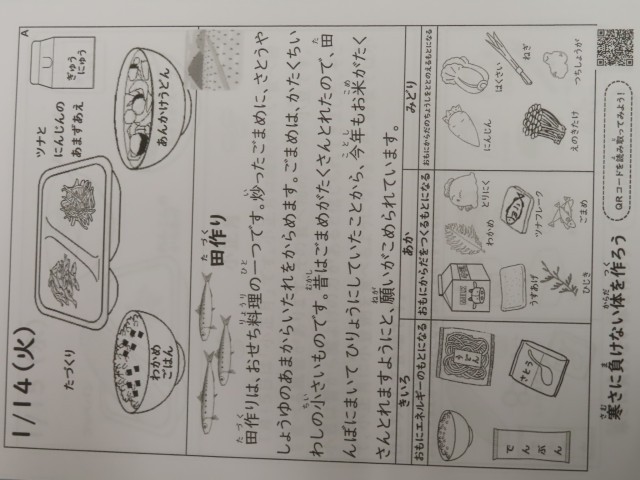 A
1/14(火)
ぎゅう
にゅう
ツナと
にんじんの
あまずあえ
あんかけうどん
たづくり
わかめ
ごはん
田作り
田作りは、おせち料理の一つです。炒ったごまめに、さとうや
しょうゆのあまからいたれをからめます。ごまめは、かたくちい
わしの小さいものです。昔はごまめがたくさんとれたので、田
んぼにまいて ひりょうにしていたことから、今年もお米がたく
さんとれますようにと、願いがこめられています。
きいろ
おもにエネルギーのもとになる
うどん
さとう
でんぷん
あか
おもにからだをつくるもとになる
とりにく
わかめ
ツナフレーク
ごまめ
うすあげ
ひじき
みどり
おもにからだのちょうしをととのえるもとになる
はくさい
ねぎ
つちしょうが
にんじん
えのきたけ
寒さに負けない体を作ろう
QRコードを読み取ってみよう!